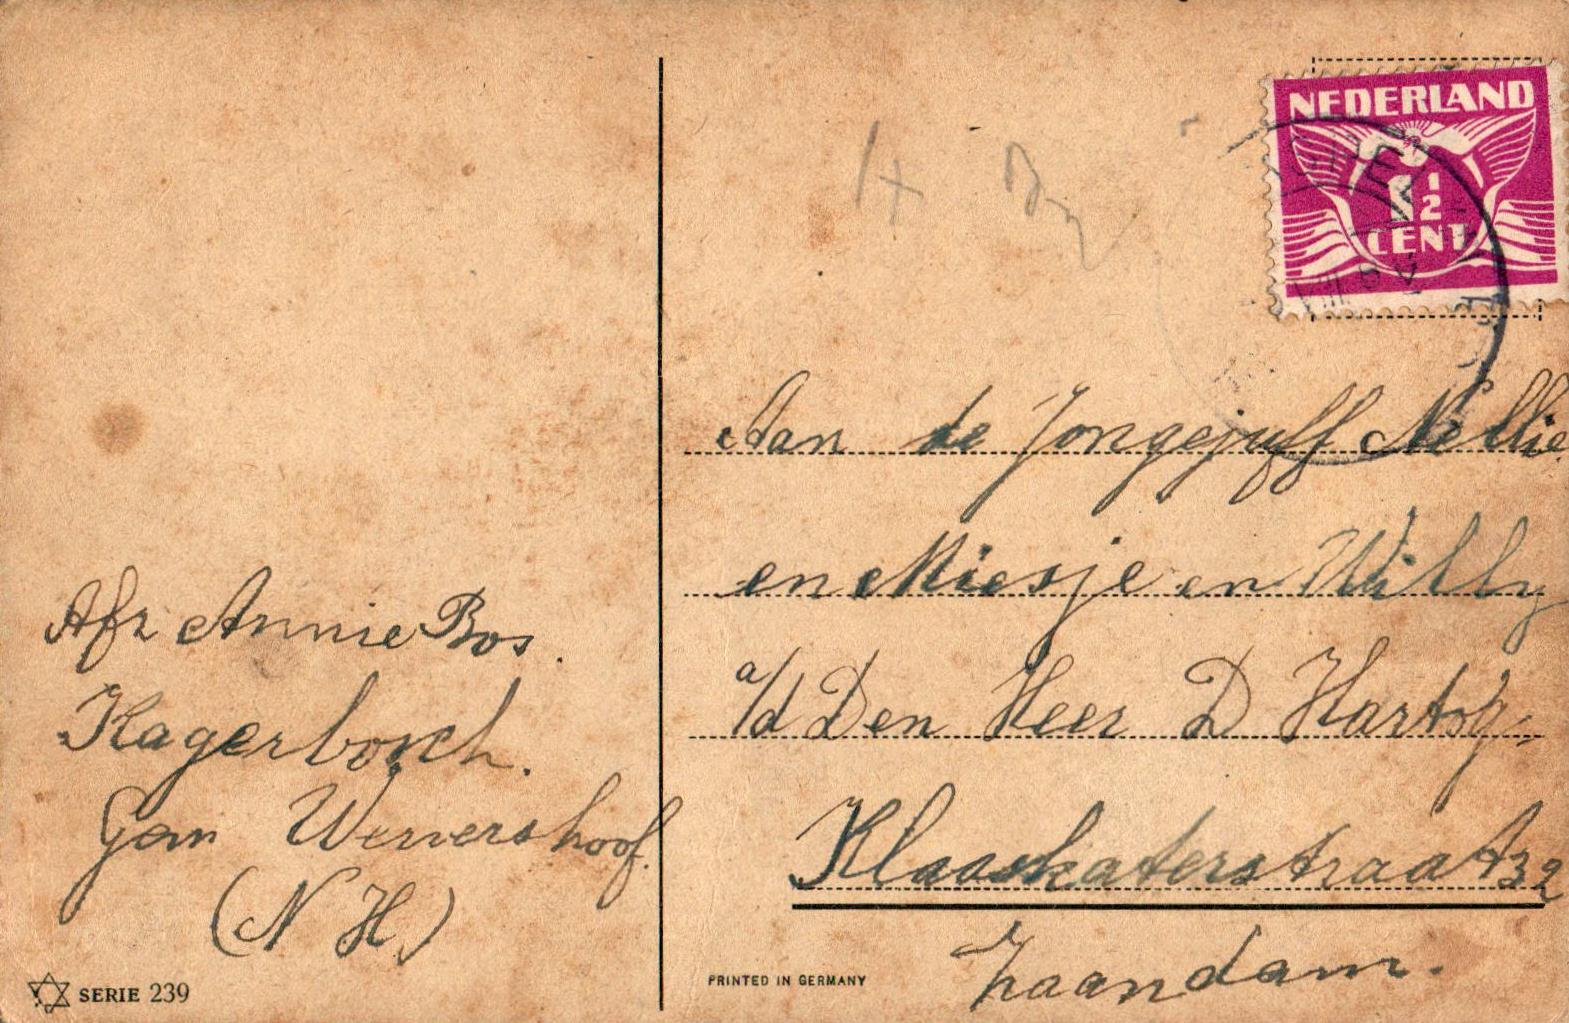 NEDERLAND
1 1/2
CENT
Aan de Jongejuff Nellie
en Miesje en Willy
a/d Den Heer D Hartog,
Klaaskaterstraat 32
Zaandam.
Afz Annie Bos.
Hagerbosch.
Gem Wervershoof.
(N H.)
SERIE 239
PRINTED IN GERMANY